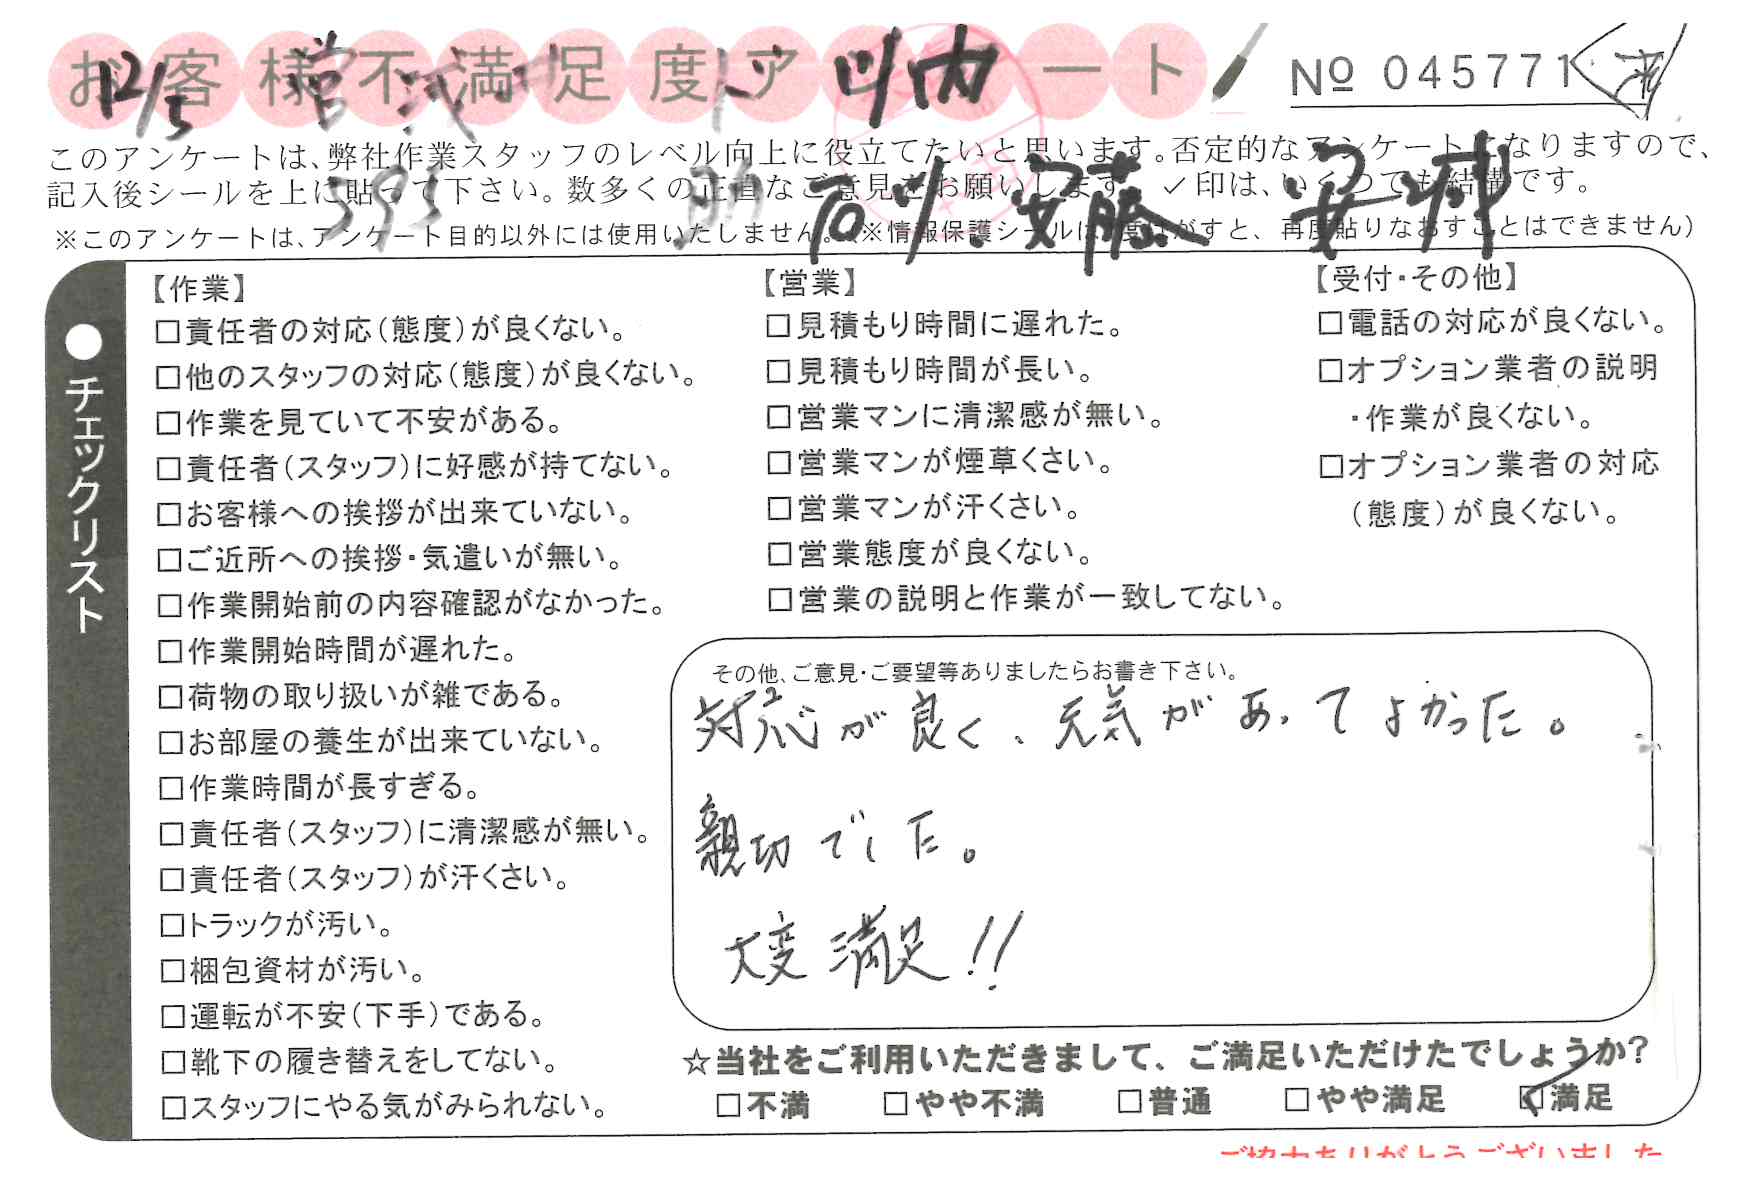 お客様不満足度アンケート
No 045771
12/5
川内
このアンケートは、弊社作業スタッフのレベル向上に役立てたいと思います。否定的なアンケートになりますので、
記入後シールを上に貼って下さい。数多くの正直なご意見をお願いします。✓印は、いくつでも結構です。
595 助 副 安藤
※このアンケートは、アンケート目的以外には使用いたしません。(※情報保護シールは1度はがすと、再度貼りなおすことはできません)
●チェックリスト
【作業】
□責任者の対応(態度)が良くない。
□他のスタッフの対応(態度)が良くない。
□作業を見ていて不安がある。
□責任者(スタッフ)に好感が持てない。
□お客様への挨拶が出来ていない。
□ご近所への挨拶・気遣いが無い。
□作業開始前の内容確認がなかった。
□作業開始時間が遅れた。
□荷物の取り扱いが雑である。
□お部屋の養生が出来ていない。
□作業時間が長すぎる。
□責任者(スタッフ)に清潔感が無い。
□責任者(スタッフ)が汗くさい。
□トラックが汚い。
□梱包資材が汚い。
□運転が不安(下手)である。
□靴下の履き替えをしてない。
□スタッフにやる気がみられない。
【営業】
□見積もり時間に遅れた。
□見積もり時間が長い。
□営業マンに清潔感が無い。
□営業マンが煙草くさい。
□営業マンが汗くさい。
□営業態度が良くない。
□営業の説明と作業が一致してない。
【受付・その他】
□電話の対応が良くない。
□オプション業者の説明
・作業が良くない。
□オプション業者の対応
(態度)が良くない。
その他、ご意見・ご要望等ありましたらお書き下さい。
対応が良く、元気があってよかった。
親切でした。
大変満足!!
☆当社をご利用いただきまして、ご満足いただけたでしょうか?
□不満 □やや不満 □普通 □やや満足 ☑満足
ご協力ありがとうございました